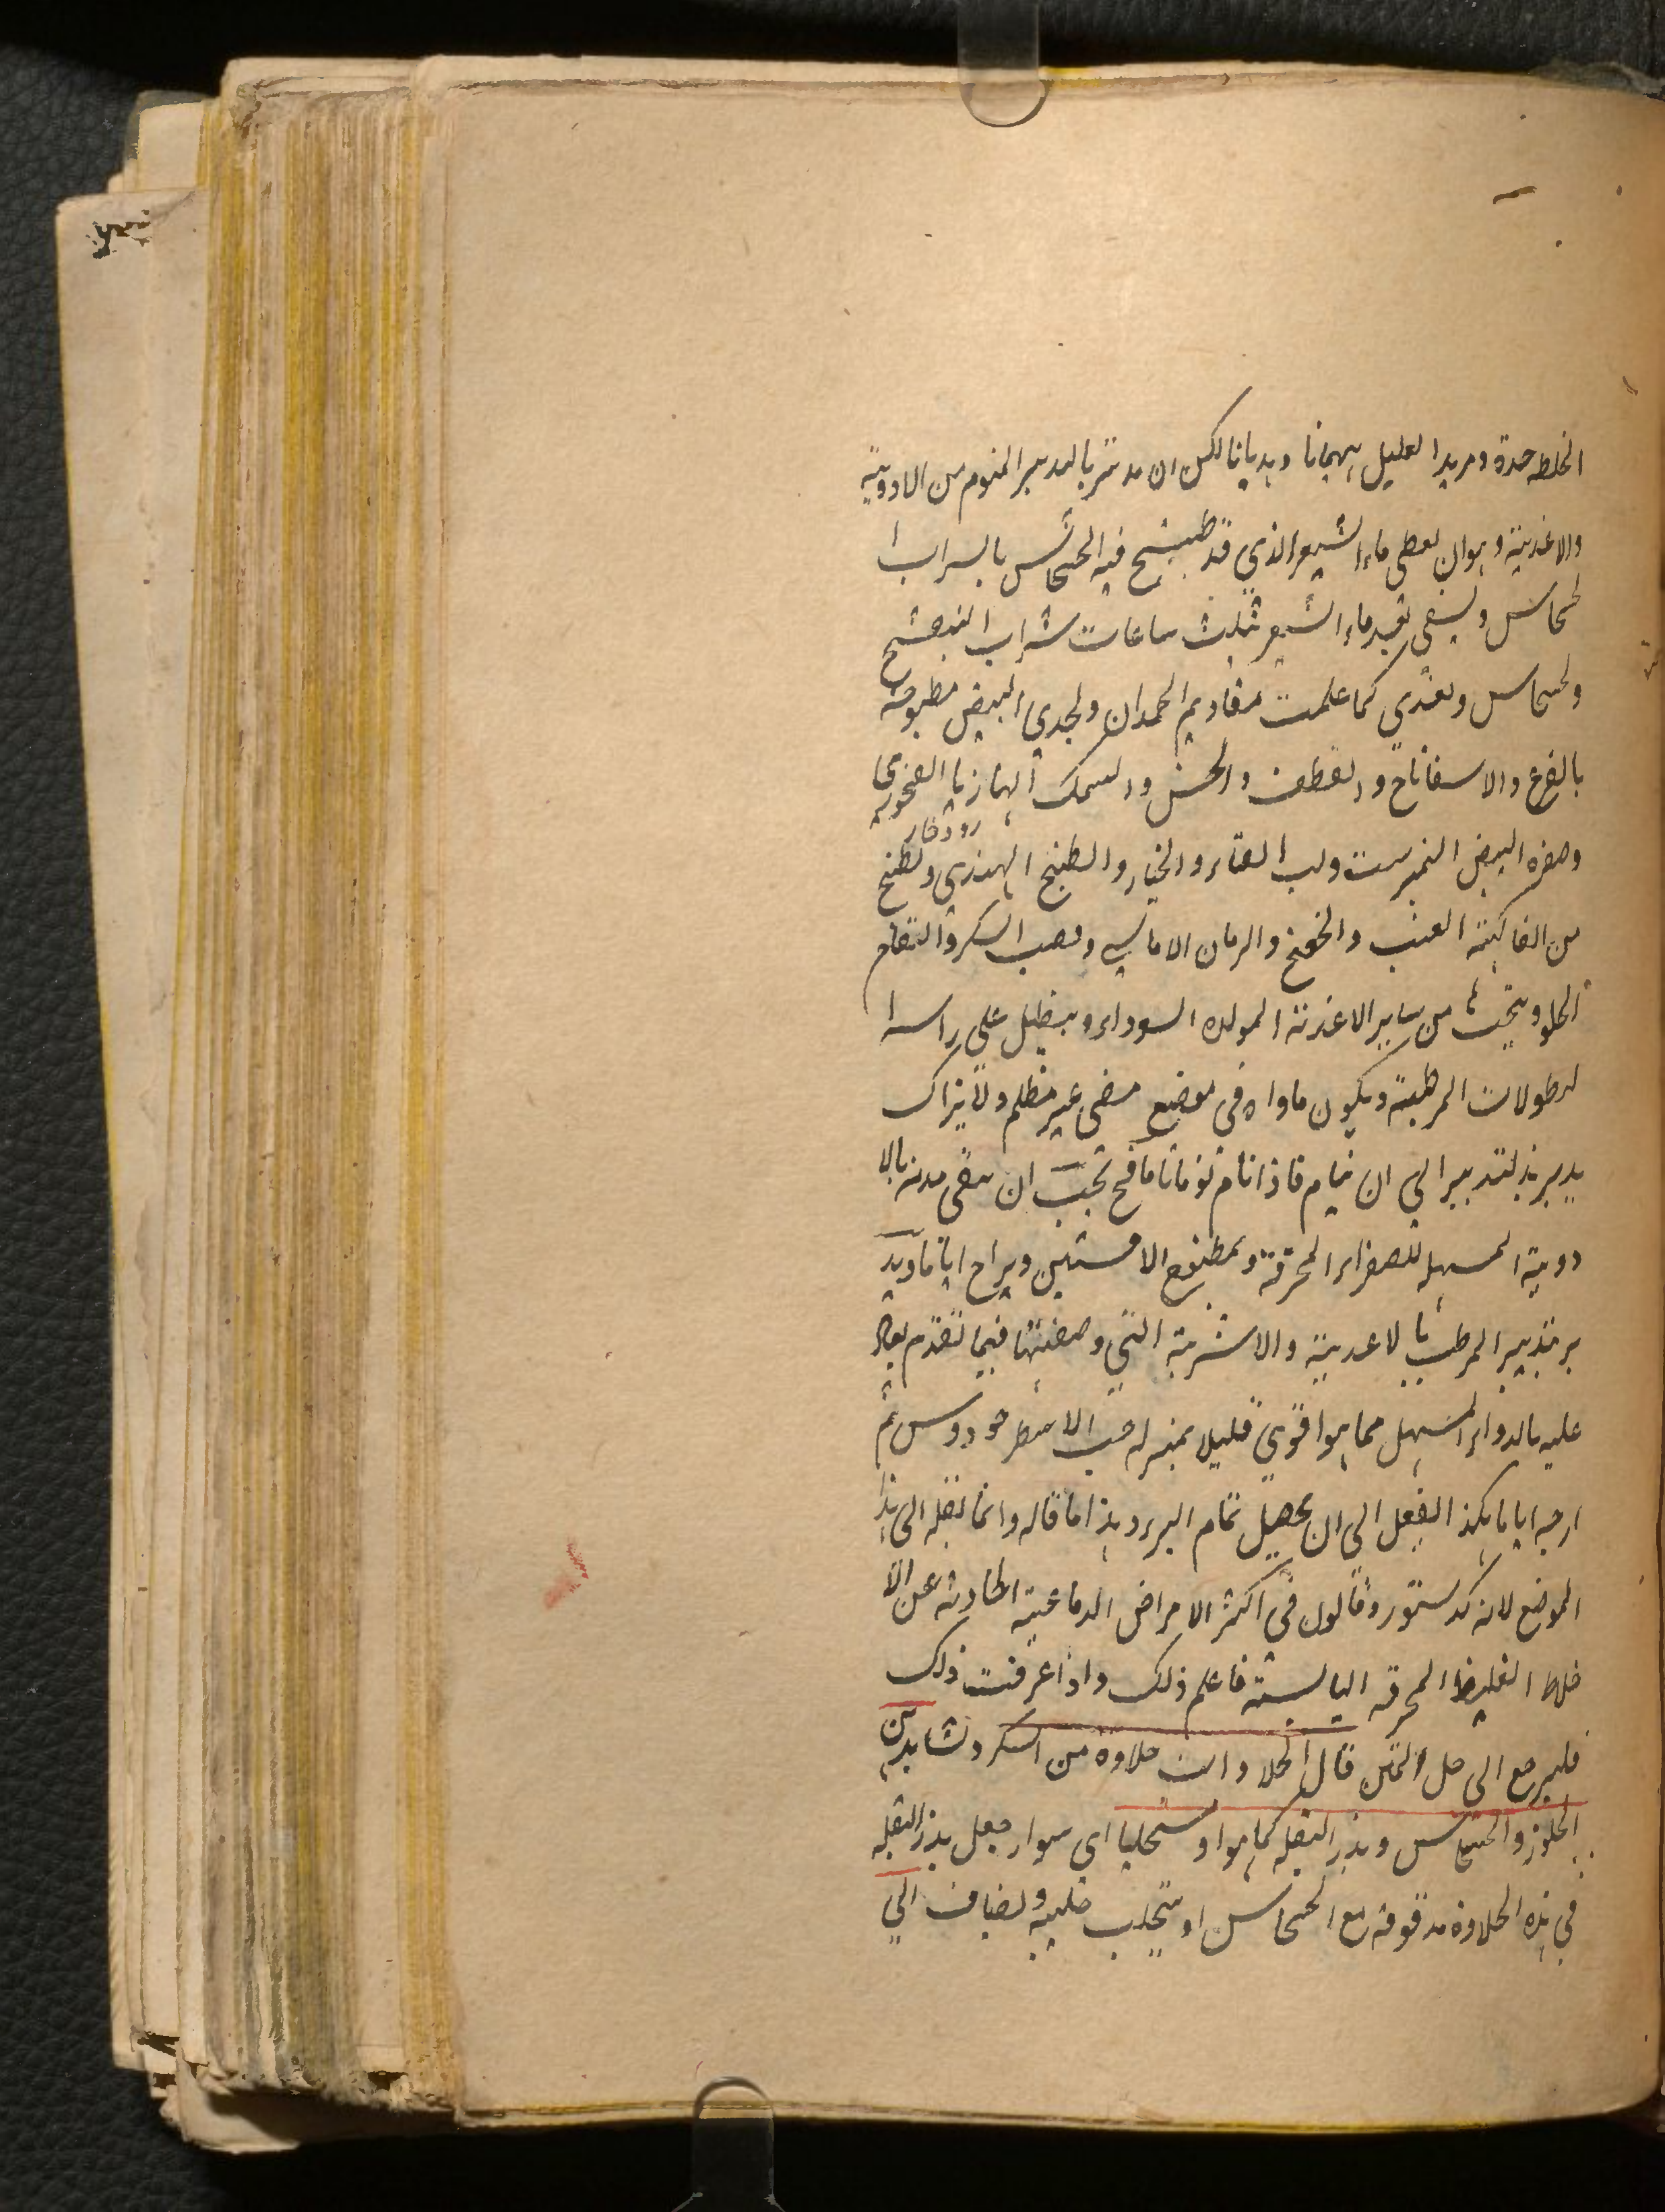 الخلط حدة ومريدا لعليل هيمانا وهذيانا لكن ان مدثر بالتدبير المنوم من الادوية
والاغذية وهوان يعطى ماء الشعير الذي قد طبخ فيه الخشخاش بالسراب ا
لخشخاش ويسقى بعد ماء الشعير بثلث ساعات شراب البنفسج
والخشخاش ويغذي كما علمت مقاديم الحمدان والجدي البيض مطبوخة
بالقرع والاسفاناخ والقطف والخس والسمك الهازبا الصخوري
رودخار
وصفره البيض النمبرست ولب القثاء والخيار والبطيخ الهندي وبطيخ
من الفاكهة العنب والخوخ والرمان الاماليسي وقصب السكر والتفاح
الحلو ويجتنب من ساير الاغذية المولده السوداء وينطل على راسه ا
لنطولات المرطبة ويكون ماواه في موضع مضى غير مظلم ولا يزاك
يدبر هذ لتدبير الى ان ينام فاذا نام نوما تاما فح يجب ان ينقى بدنه بالا
دوية المسهله للصفراء المحرقة وبمطبوخ الافسنتين ويراح اياما ويد
بر بتدبير المرطب بالاغدية والاشربة التي وصفتها فيما تقدم يعاد
عليه بالدواء المسهل مما هوا قوي قليلا بمنزله حب الاسطوخودوس ثم
ارحه اياما هكذ الفعل الى ان يحصل تمام البرء وهذا ما قاله وانما نقله الى هذا
الموضع لانه كدستور وقالول في اكثر الامراض الدماغية الحادثه عن الا
خلاط الغليظ المحرقه اليابسة فاعلم ذلك واذا عرفت ذلك
فليرجع الى حل المتن قال الحلاوات حلاوه من السكر ونشا ودهن
الجلوز والخشخاش وبذر البقله كما هوا ومستحلبا اي سوا جعل بذر البقله
في هذه الحلاوة مدقوقه مع الخشخاش او يتحلب حليبه ويضاف الي